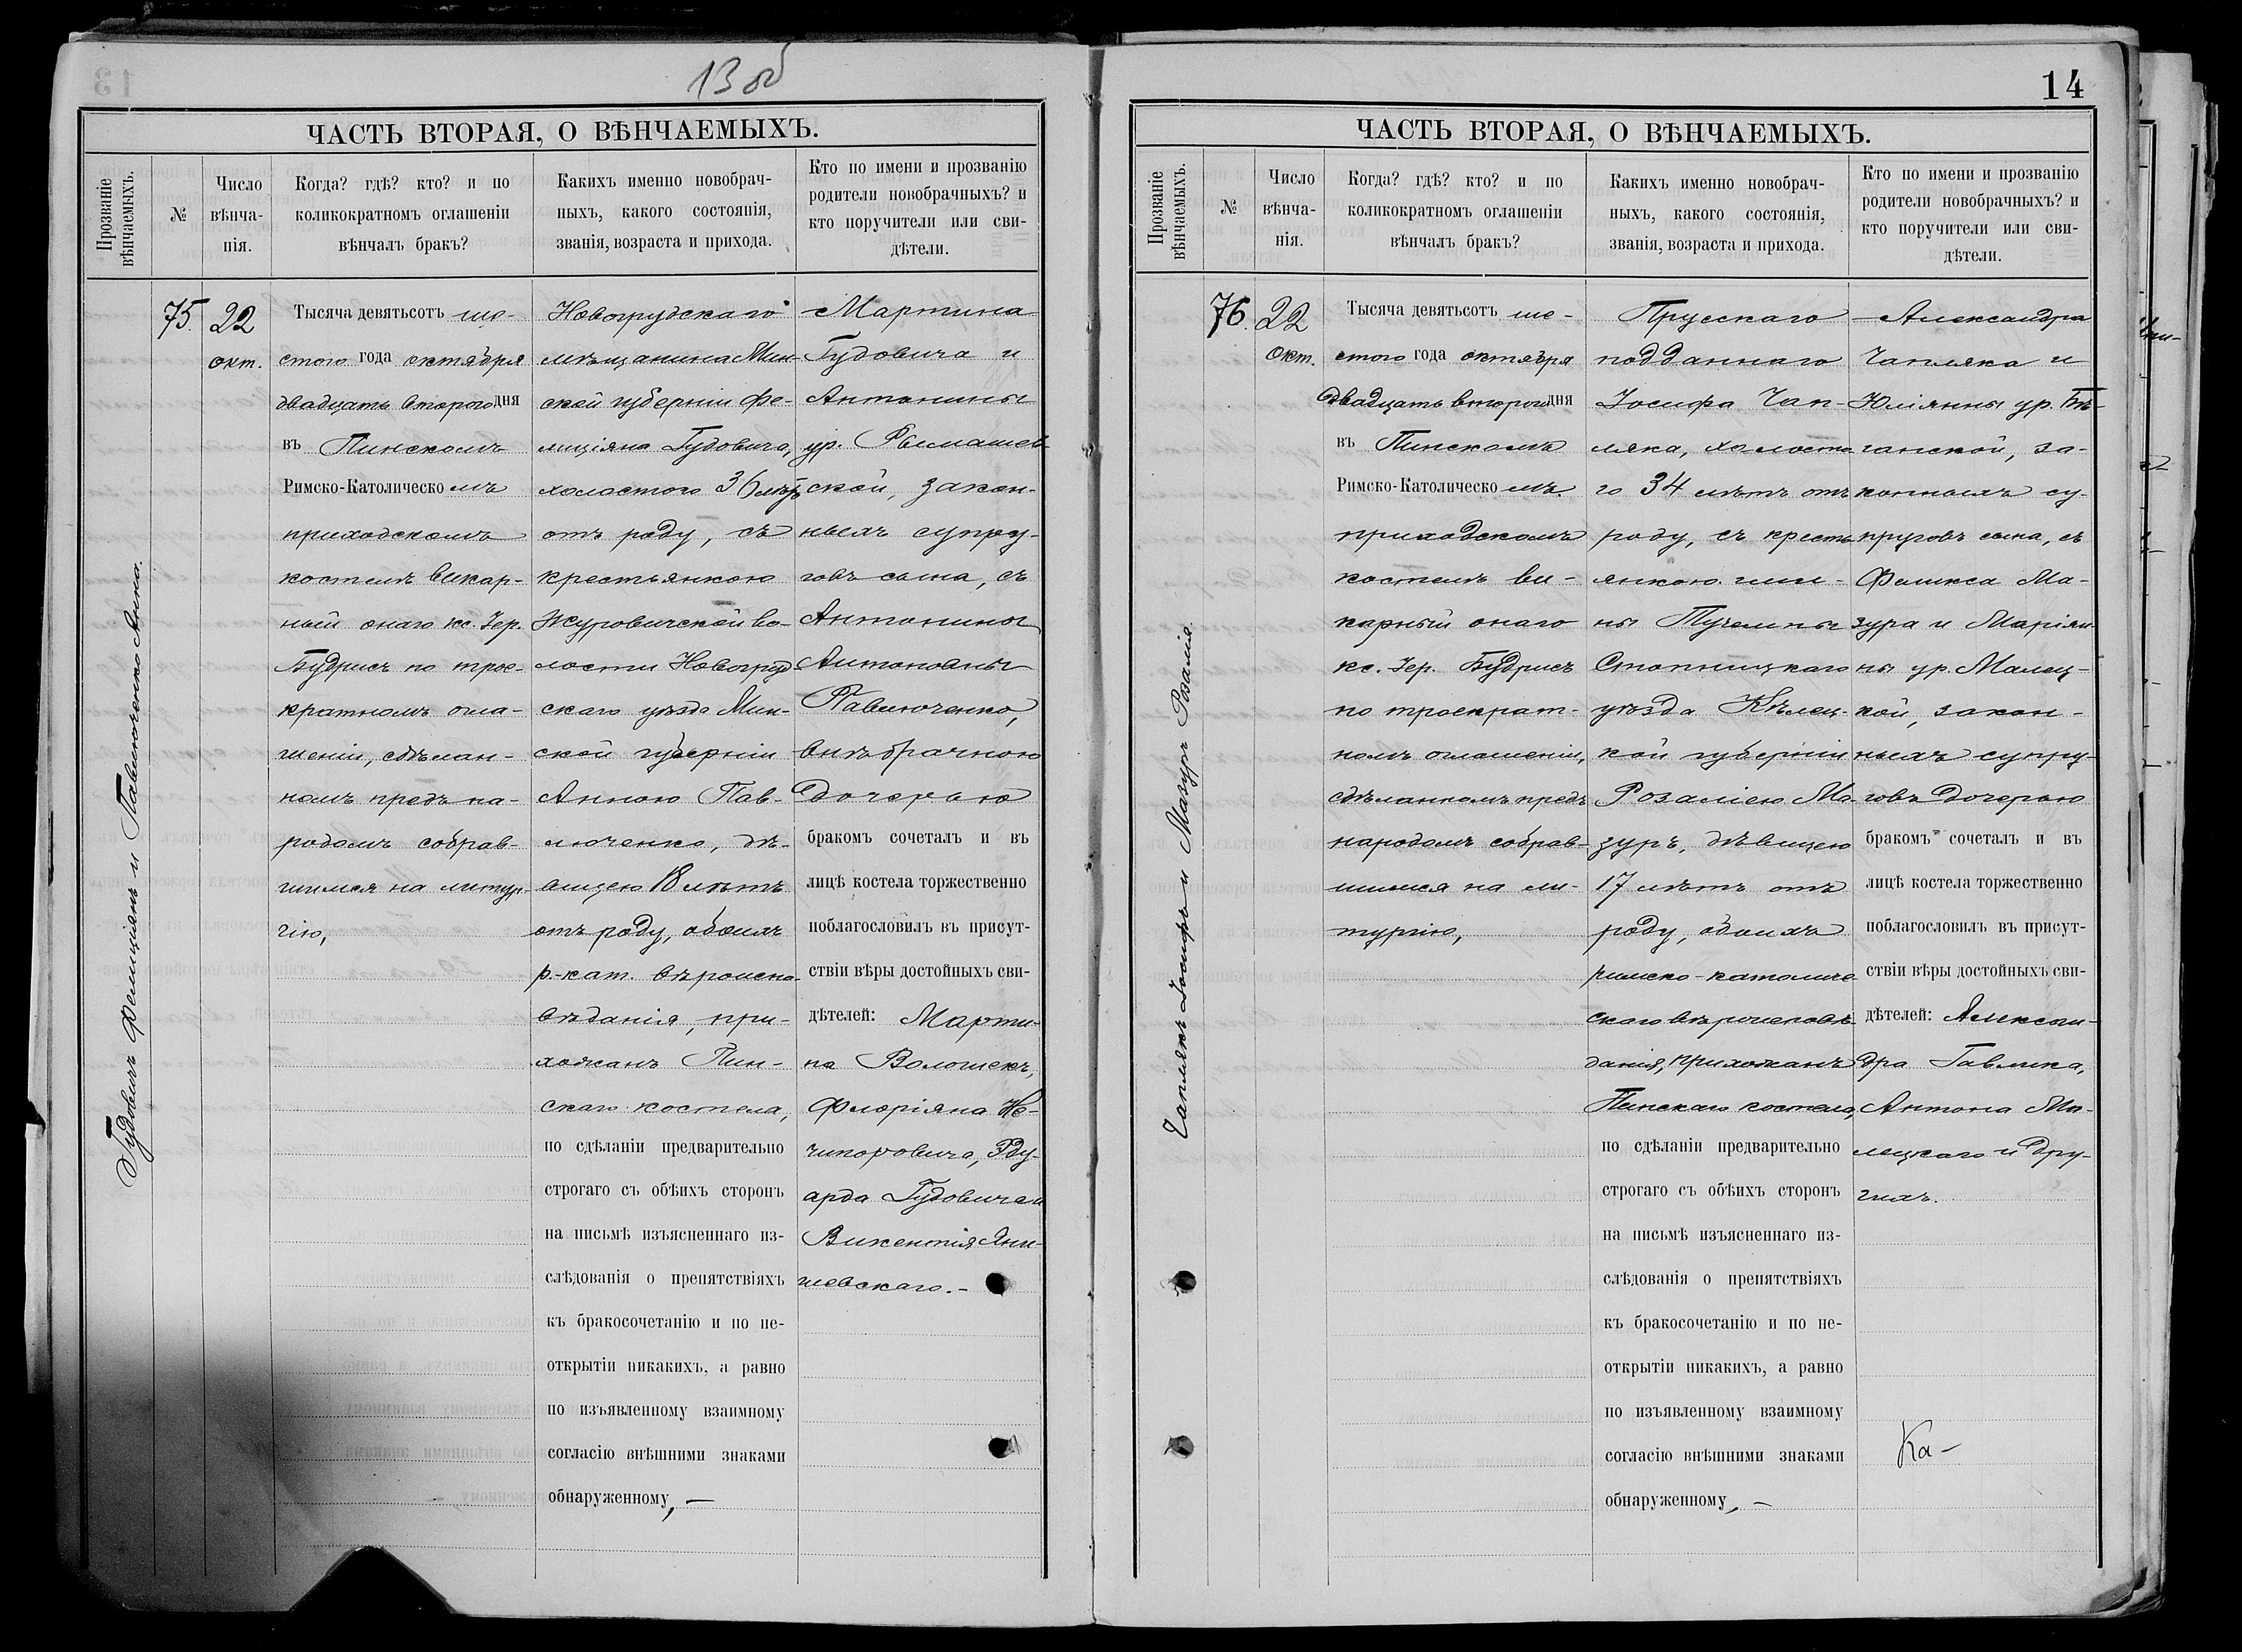 13 об
ЧАСТЬ ВТОРАЯ, О ВѢНЧАЕМЫХЪ.
Прозваніе вѣнчаемыхъ.
№
Число
вѣнча-
нія.
Когда? гдѣ? кто? и по
коликократномъ оглашеніи
вѣнчалъ бракъ?
Какихъ именно новобрач-
ныхъ, какого состоянія,
званія, возраста и прихода.
Кто по имени и прозванію
родители новобрачныхъ? и
кто поручители или сви-
дѣтели.
Гудовичъ Фелиціянъ и Павлюченко Анна.
75.
22
окт.
Тысяча девятьсотъ ше-
стого года октября
двадцать второго дня
въ Пинскомъ
Римско-Католическомъ
приходскомъ
костелѣ викар-
ный онаго кс. Іер.
Будрисъ по трое-
кратномъ огла-
шеніи, сдѣлан-
номъ предъ на-
родомъ собрав-
шимся на литур-
гію,
Новогрудскаго
мѣщанина Мин-
ской губерніи Фе-
лиціяна Гудовича,
холостого 36 лѣтъ
отъ роду, съ
крестьянкою
Жуховичской во-
лости Новогруд-
скаго уѣзда Мин-
ской губерніи
Анною Пав-
люченко, дѣ-
вицею 18 лѣтъ
отъ роду, обоихъ
р.-кат. вѣроиспо-
вѣданія, при-
хожанъ Пин-
скаго костела,
по сдѣланіи предварительно
строгаго съ обѣихъ сторонъ
на письмѣ изъясненнаго из-
слѣдованія о препятствіяхъ
къ бракосочетанію и по не-
открытіи никакихъ, а равно
по изъявленному взаимному
согласію внѣшними знаками
обнаруженному, —
Мартина
Гудовича и
Антонины
ур.
ской, закон-
ныхъ супру-
говъ сына, съ
Антонины
Антоновны
Павлюченко,
внѣбрачною
дочерью
бракомъ сочеталъ и въ
лицѣ костела торжественно
поблагословилъ въ присут-
ствіи вѣры достойныхъ сви-
дѣтелей: Марти-
на Волошекъ,
Флоріяна Не-
чипоровича, Эду-
арда Гудовича и
Викентія Яни-
шевскаго. -
14
ЧАСТЬ ВТОРАЯ, О ВѢНЧАЕМЫХЪ.
Прозваніе вѣнчаемыхъ.
№
Число
вѣнча-
нія.
Когда? гдѣ? кто? и по
коликократномъ оглашеніи
вѣнчалъ бракъ?
Какихъ именно новобрач-
ныхъ, какого состоянія,
званія, возраста и прихода.
Кто по имени и прозванію
родители новобрачныхъ? и
кто поручители или сви-
дѣтели.
Чаплякъ Іосифъ и Мазуръ Розалія.
76.
22
Окт.
Тысяча девятьсотъ ше-
стого года октября
двадцать второго дня
въ Пинскомъ
Римско-Католическомъ
приходскомъ
костелѣ ви-
карный онаго
кс. Іер. Будрисъ
по троекрат-
номъ оглашеніи,
сдѣланномъ предъ
народомъ собрав-
шимся на ли-
тургію,
Прусскаго
подданнаго
Іосифа Чап-
ляка, холосто-
го 34 лѣтъ отъ
роду, съ кресть-
янкою гми-
ны Тучемпы
Стопницкаго
уѣзда Кѣлец-
кой губерніи
Розаліею Ма-
зуръ, дѣвицею
17 лѣтъ отъ
роду, обоихъ
римско-католиче-
скаго вѣроисповѣ-
данія, прихожанъ
Пинскаго костела,
по сдѣланіи предварительно
строгаго съ обѣихъ сторонъ
на письмѣ изъясненнаго из-
слѣдованія о препятствіяхъ
къ бракосочетанію и по не-
открытіи никакихъ, а равно
по изъявленному взаимному
согласію внѣшними знаками
обнаруженному, —
Александра
Чапляка и
Юліянны ур.
ганской, за-
конныхъ су-
пруговъ сына, съ
Феликса Ма-
зура и Маріян-
ны ур. Малец-
кой, закон-
ныхъ супру-
говъ дочерью
бракомъ сочеталъ и въ
лицѣ костела торжественно
поблагословилъ въ присут-
ствіи вѣры достойныхъ сви-
дѣтелей: Алексан-
дра Гавлика,
Антона Ма-
лецкаго и дру-
гихъ.
Ка-